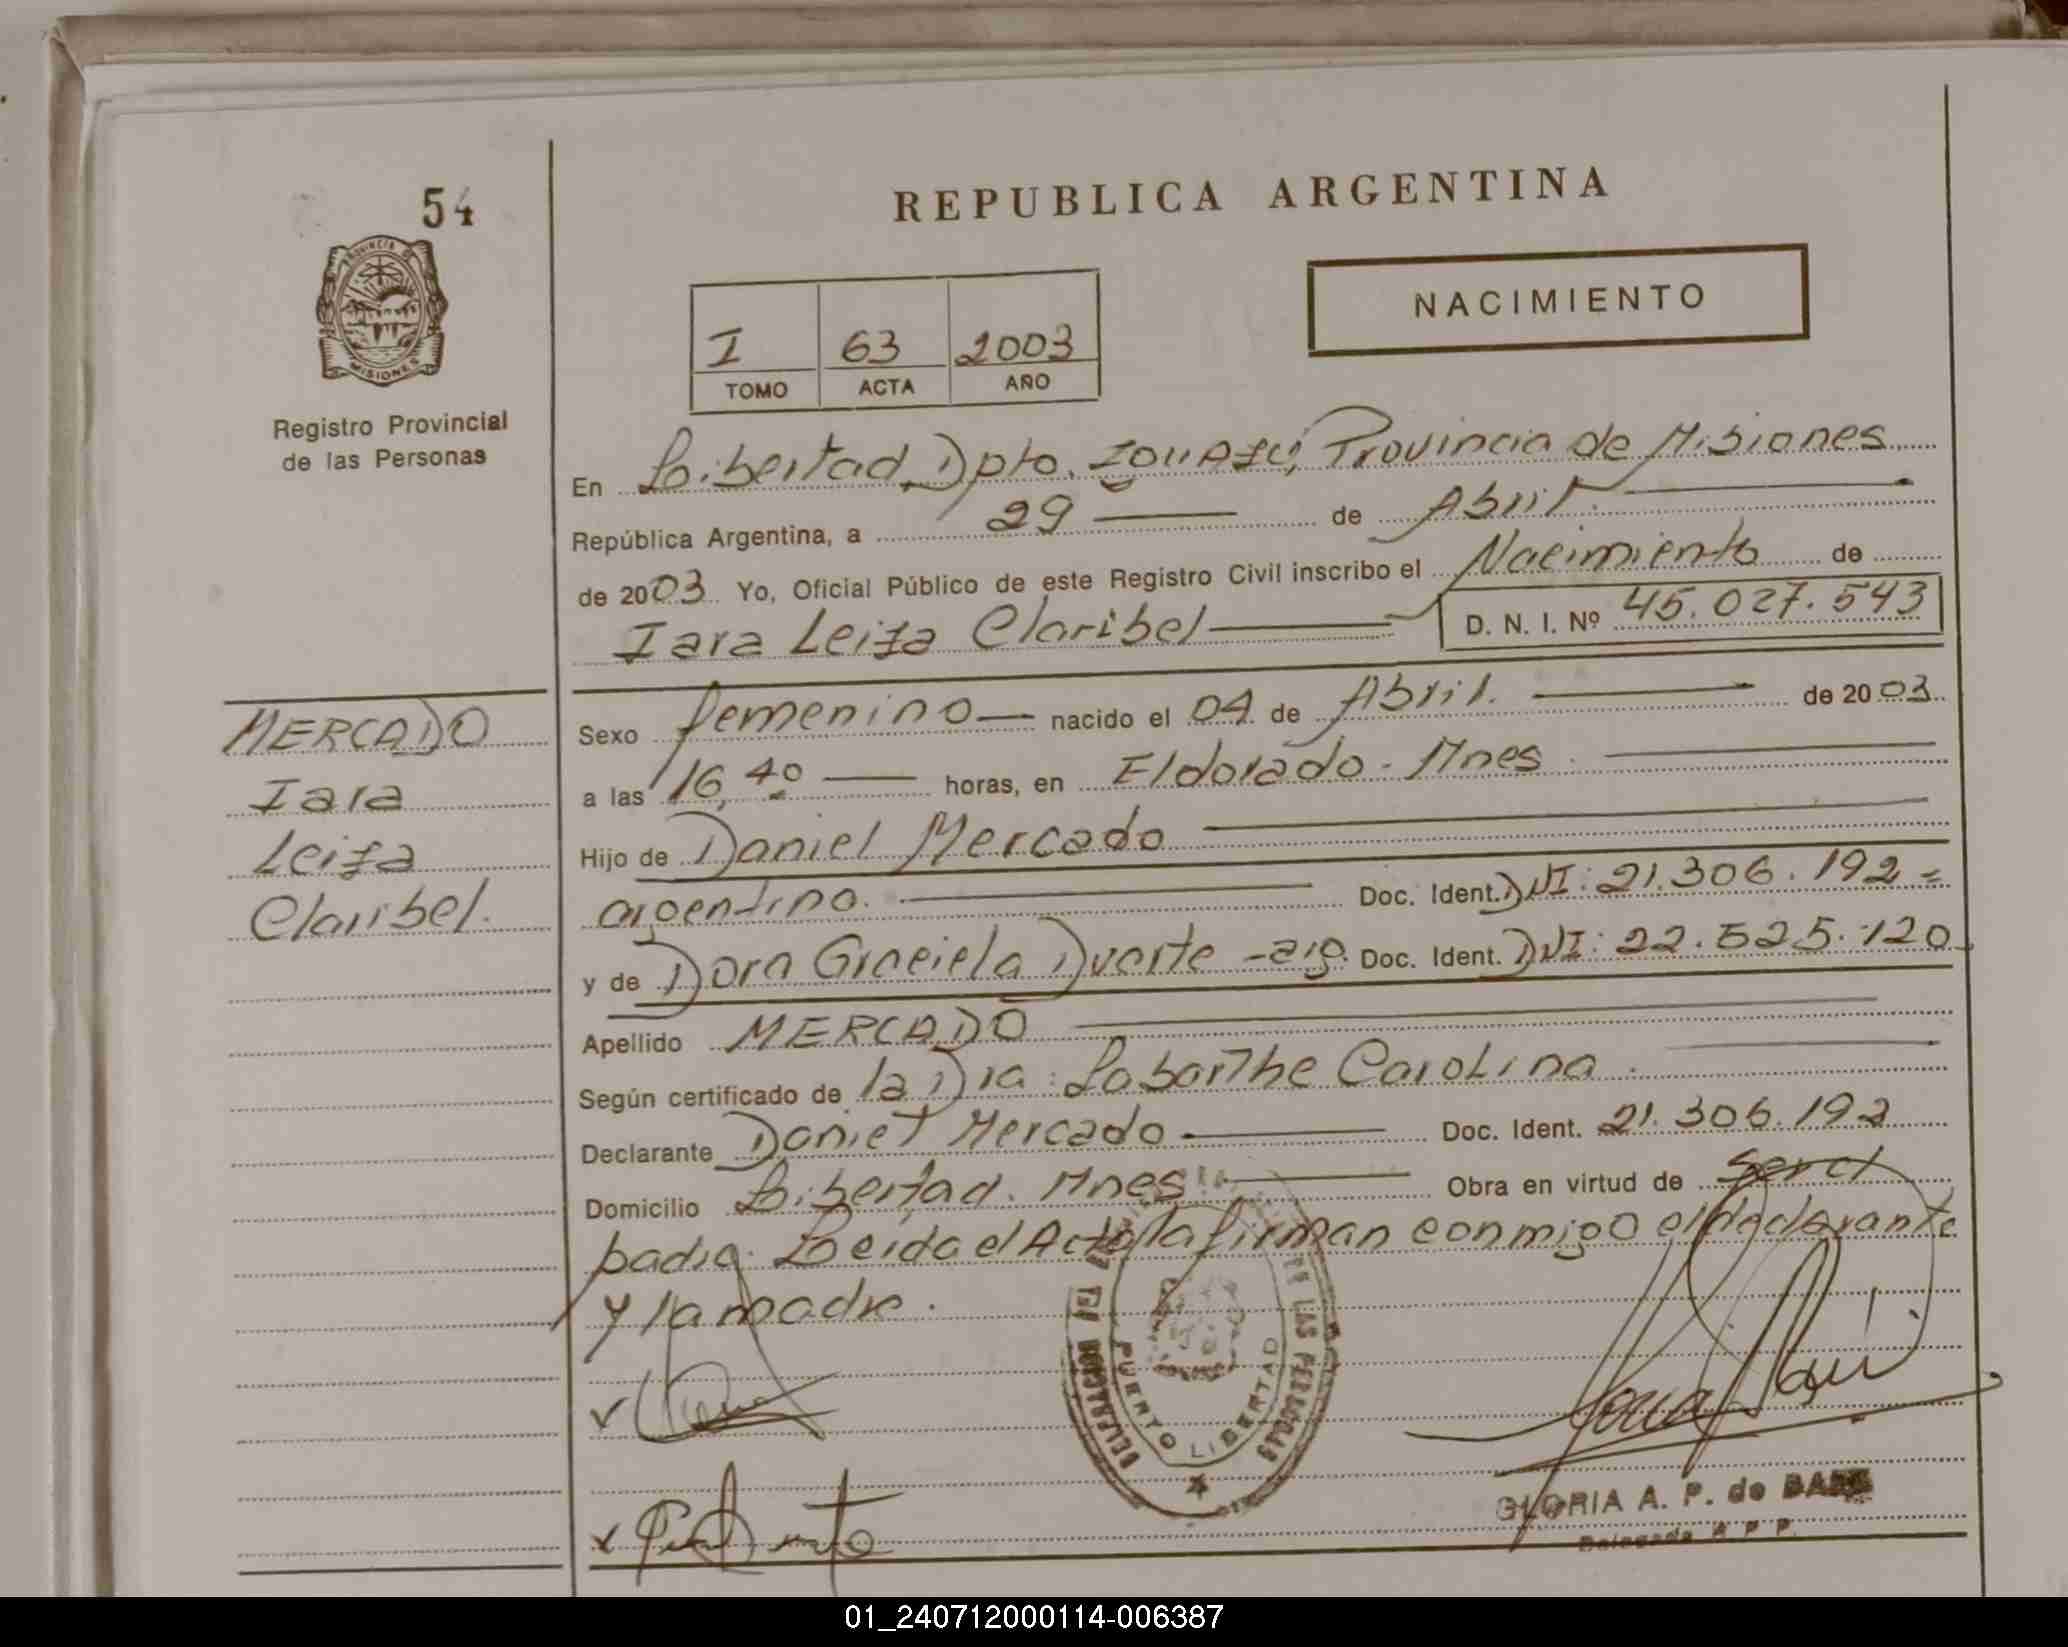 54
REPUBLICA ARGENTINA
PROVINCIA D
MISIONES
Registro Provincial
de las Personas
NACIMIENTO
I 63 2003
TOMO ACTA AÑO
En Libertad, Dpto. IGUAZU, Provincia de Misiones
República Argentina, a 29 de Abril.
de 2003 Yo, Oficial Público de este Registro Civil inscribo el Nacimiento de
Iara Leiza Claribel D. N. I. Nº 45.027.543
MERCADO
Iara
Leiza
Claribel.
Sexo femenino nacido el 04 de Abril. de 2003
a las 16,40 horas, en Eldorado - Mnes.
Hijo de Daniel Mercado
argentino. Doc. Ident. DNI: 21.306.192 =
y de Dora Graciela Duarte - arg. Doc. Ident. DNI: 22.525.120
Apellido MERCADO
Según certificado de la Dra: Laborthe Carolina.
Declarante Daniel Mercado Doc. Ident. 21.306.192
Domicilio Libertad. Mnes. Obra en virtud de ser el
padre. Leida el Acta la firman conmigo el declarante
y la madre.
DE LAS PERSONAS
PUERTO LIBERTAD
GLORIA A. P. de
Delegada R P P
01_240712000114-006387